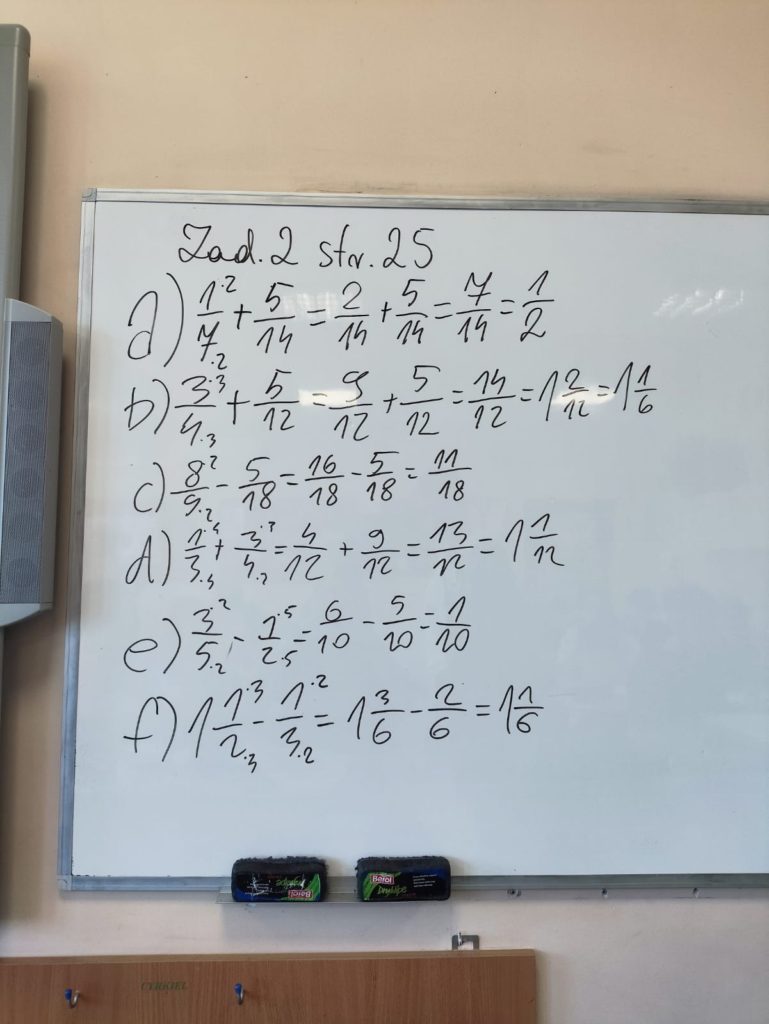 Zad. 2 str. 25
a) 1·2/7·2 + 5/14 = 2/14 + 5/14 = 7/14 = 1/2
b) 3·3/4·3 + 5/12 = 9/12 + 5/12 = 14/12 = 1 2/12 = 1 1/6
c) 8·2/9·2 - 5/18 = 16/18 - 5/18 = 11/18
d) 1·4/3·4 + 3·3/4·2 = 4/12 + 9/12 = 13/12 = 1 1/12
e) 3·2/5·2 - 1·5/2·5 = 6/10 - 5/10 = 1/10
f) 1 1·3/2·3 - 1·2/3·2 = 1 3/6 - 2/6 = 1 1/6
Berol
Berol
DryWipe
CYRKIEL